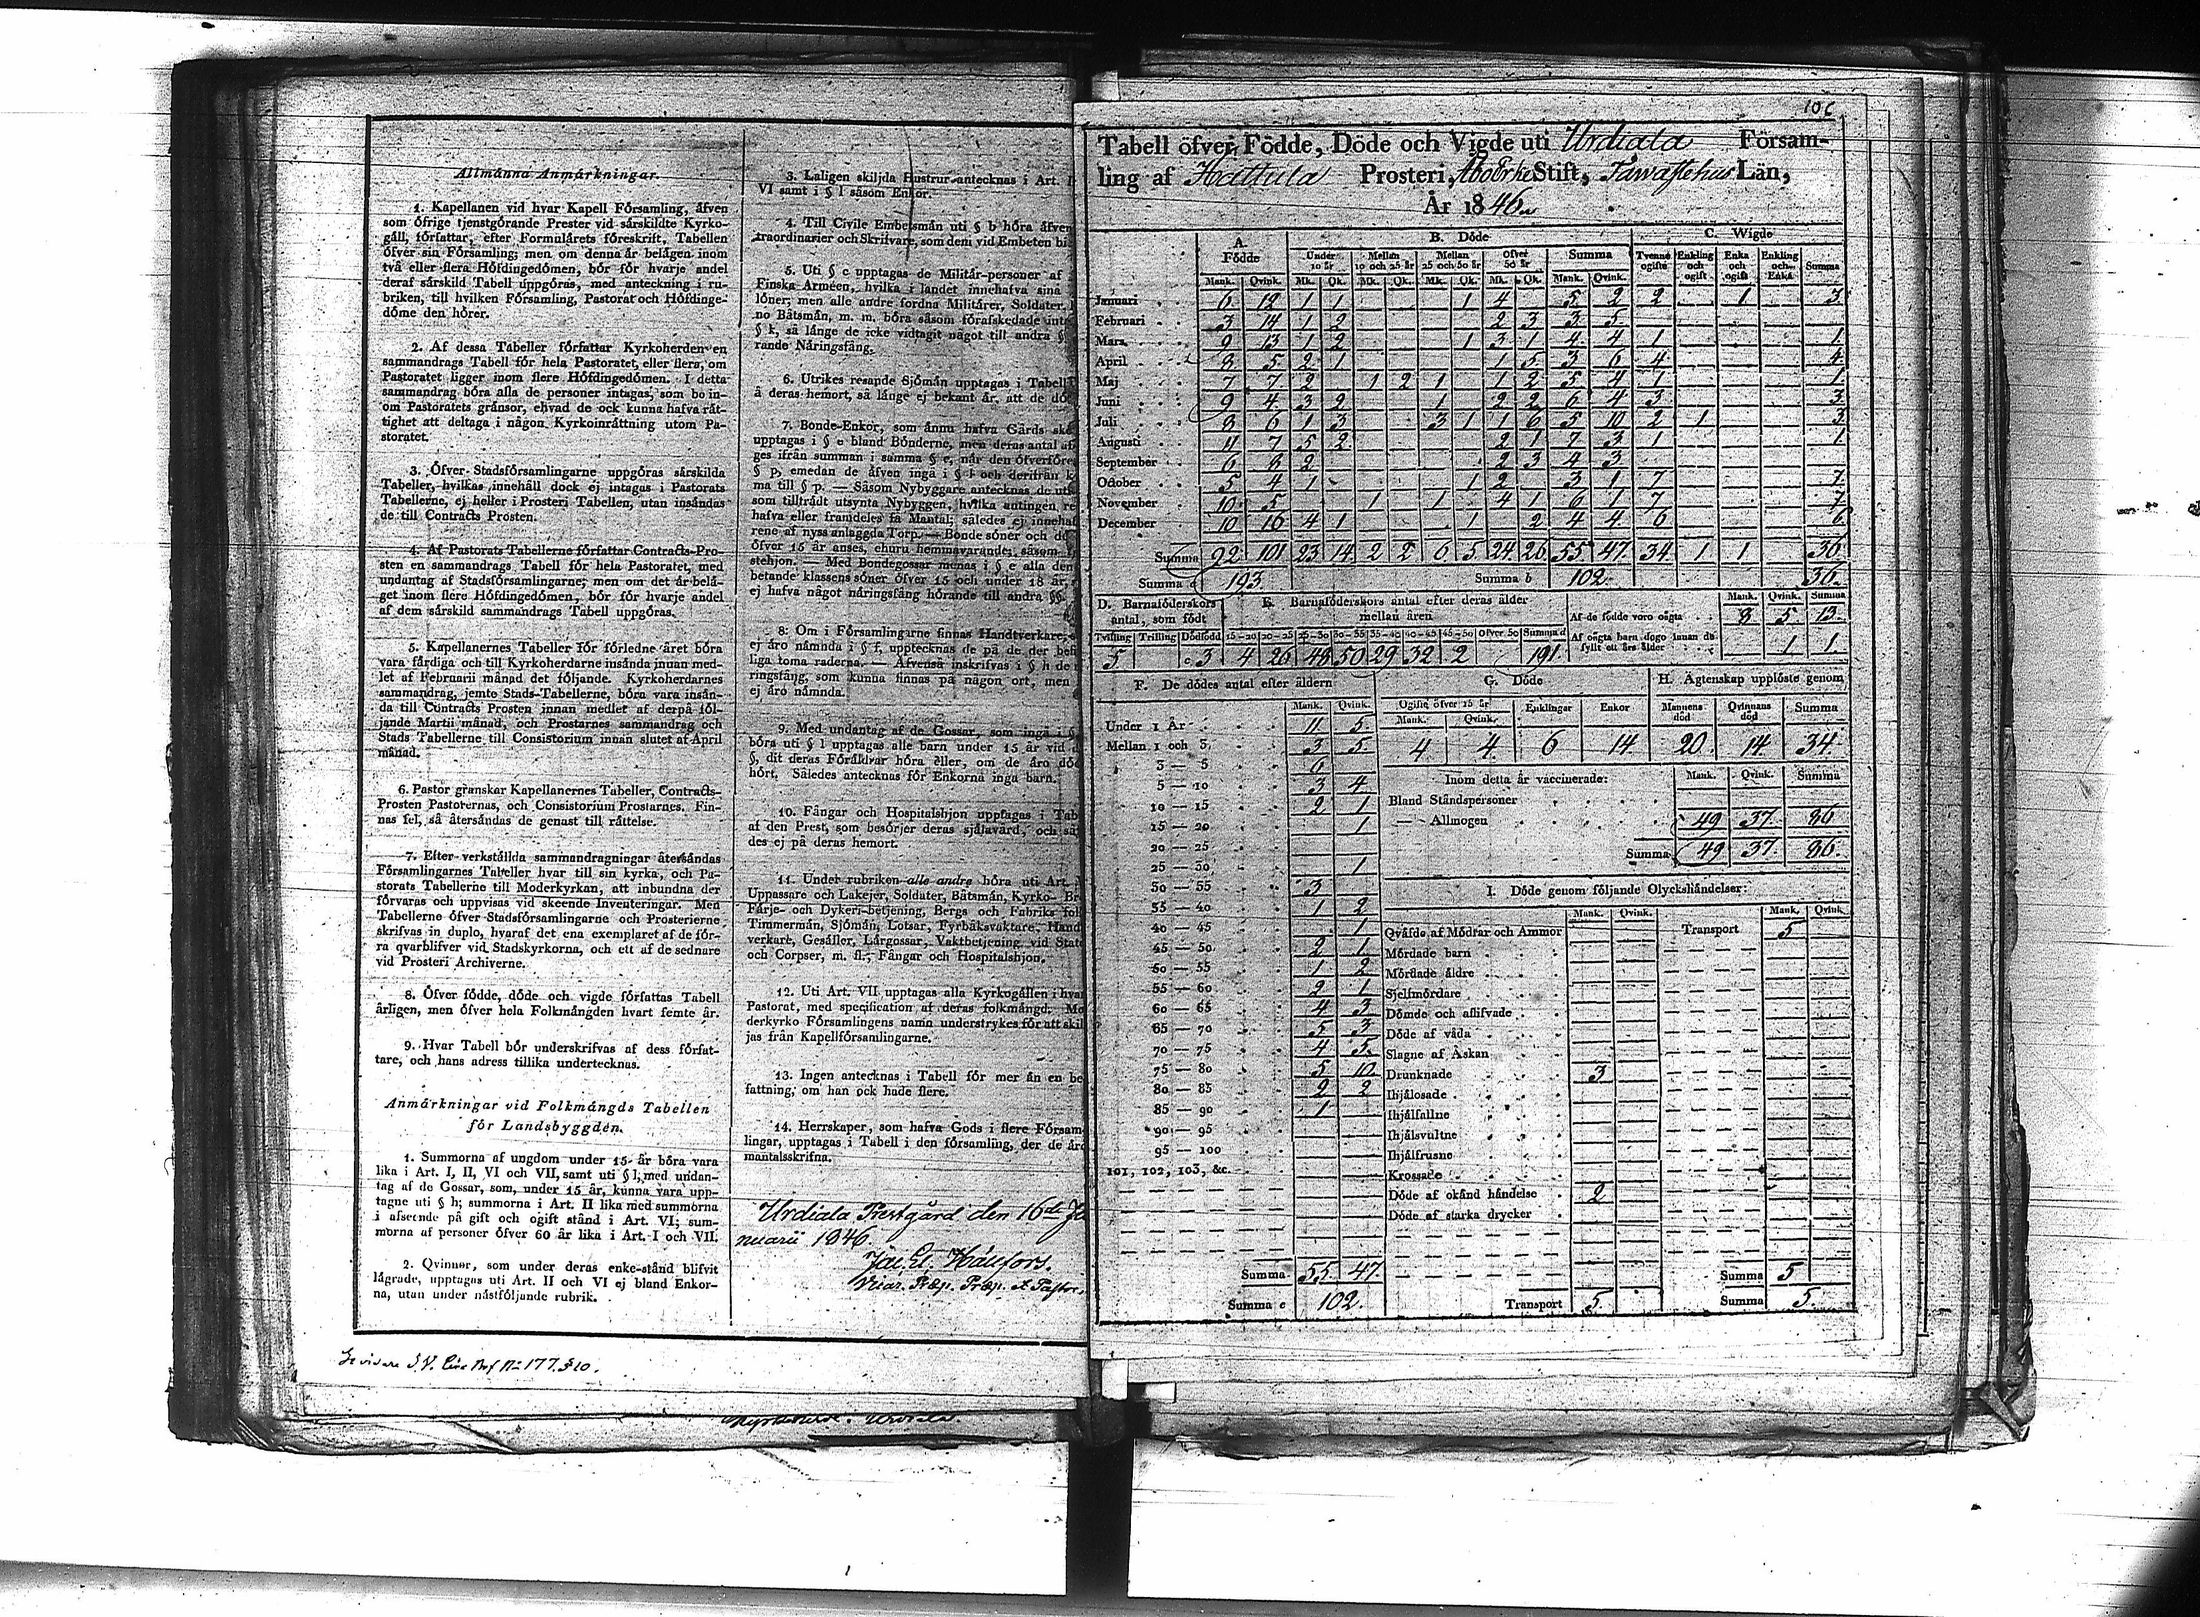 Allmånna Anmårkningar.
1. Kapellanen vid hvar Kapell Församling, åfven
som öfrige tjenstgörande Prester vid sårskildte Kyrko-
gåll, författar, efter Formulårets föreskrift, Tabellen
öfver sin Församling; men om denna år belågen inom
två eller flera Höfdingedömen, bör för hvarje andel
deraf sårskild Tabell uppgöras, med anteckning i ru-
briken, till hvilken Församling, Pastorat och Höfdinge-
döme den hörer.
2. Af dessa Tabeller författar Kyrkoherden en
sammandrags Tabell för hela Pastoratet, eller flera, om
Pastoratet ligger inom flere Höfdingedömen. I detta
sammandrag böra alla de personer intagas, som bo in-
om Pastoratets grånsor, ehvad de ock kunna hafva råt-
tighet att deltaga i någon Kyrkoinråttning utom Pa-
storatet.
3. Öfver Stadsförsamlingarne uppgöras sårskilda
Tabeller, hvilkas innehåll dock ej intagas i Pastorats
Tabellerne, ej heller i Prosteri Tabellen, utan insåndas
de till Contracts Prosten.
4. Af Pastorats Tabellerne författar Contracts-Pro-
sten en sammandrags Tabell för hela Pastoratet, med
undantag af Stadsförsamlingarne; men om det år belå-
get inom flere Höfdingedömen, bör för hvarje andel
af dem sårskild sammandrags Tabell uppgöras.
5. Kapellanernes Tabeller för förledne året böra
vara fårdiga och till Kyrkoherdarne insånda innan med-
let af Februarii månad det följande. Kyrkoherdarnes
sammandrag, jemte Stads-Tabellerne, böra vara insån-
da till Contracts Prosten innan medlet af derpå föl-
jande Martii månad, och Prostarnes sammandrag och
Stads Tabellerne till Consistorium innan slutet af April
månad.
6. Pastor granskar Kapellanernes Tabeller, Contracts-
Prosten Pastorernas, och Consistorium Prostarnes. Fin-
nas fel, så återsåndas de genast till råttelse.
7. Efter verkstållda sammandragningar återsåndas
Församlingarnes Tabeller hvar till sin kyrka, och Pa-
storats Tabellerne till Moderkyrkan, att inbundna der
förvaras och uppvisas vid skeende Inventeringar. Men
Tabellerne öfver Stadsförsamlingarne och Prosterierne
skrifvas in duplo, hvaraf det ena exemplaret af de för-
ra qvarblifver vid Stadskyrkorna, och ett af de sednare
vid Prosteri Archiverne.
8. Öfver födde, döde och vigde författas Tabell
årligen, men öfver hela Folkmångden hvart femte år.
9. Hvar Tabell bör underskrifvas af dess förfat-
tare, och hans adress tillika undertecknas.
Anmårkningar vid Folkmångds Tabellen
för Landsbyggden.
1. Summorna af ungdom under 15 år böra vara
lika i Art. I, II, VI och VII, samt uti § l, med undan-
tag af de Gossar, som, under 15 år, kunna vara upp-
tagne uti § h; summorna i Art. II lika med summorna
i afseende på gift och ogift stånd i Art. VI; sum-
morna af personer öfver 60 år lika i Art. I och VII.
2. Qvinnor, som under deras enke-stånd blifvit
lågrade, upptagas uti Art. II och VI ej bland Enkor-
na, utan under nåstföljande rubrik.
3. Laligen skiljda Hustrur antecknas i Art.
VI samt i § l såsom Enkor.
4. Till Civile Embetsmån uti § b höra åfven
traordinarier och Skrifvare, som dem vid Embeten bi
5. Uti § c upptagas de Militår-personer af
Finska Arméen, hvilka i landet innehafva sina
löner; men alle andre fordna Militårer, Soldater,
no Båtsmån, m. m. böra såsom förafskedade
§ k, så långe de icke vidtagit något till andra §
rande Nåringsfång.
6. Utrikes resande Sjömån upptagas i Tabell
å deras hemort, så långe ej bekant år, att de dö
7. Bonde-Enkor, som ånnu hafva Gårds
upptagas i § e bland Bönderne, men deras antal af
ges ifrån summan i samma § e, når den öfverföres
§ p, emedan de åfven ingå i § l och derifrån
ma till § p. — Såsom Nybyggare antecknas de
som tilltrådt utsynta Nybyggen, hvilka antingen re
hafva eller framdeles få Mantal; således ej innehaf
rene af nyss anlaggda Torp. — Bonde söner och
öfver 15 år anses, ehuru hemmavarande, såsom
stehjon. — Med Bondegossar menas i § e alla den
betande klassens söner öfver 15 och under 18 år,
ej hafva något nåringsfång hörande till andra §§.
8. Om i Församlingarne finnas Handtverkare,
ej åro nåmnda i § f, upptecknas de på de der
liga toma raderna. — Åfvenså inskrifvas i § h de
ringsfång, som kunna finnas på någon ort, men
ej åro nåmnda.
9. Med undantag af de Gossar, som ingå i §
böra uti § l upptagas alle barn under 15 år vid
§, dit deras Föråldrar höra eller, om de åro dö
hört. Således antecknas för Enkorna inga barn.
10. Fångar och Hospitalshjon upptagas i Tab
af den Prest, som besörjer deras själavård, och så
des ej på deras hemort.
11. Under rubriken alle andre höra uti Art.
Uppassare och Lakejer, Soldater, Båtsmån, Kyrko-
Fårje- och Dykeri-betjening, Bergs och Fabriks fol
Timmermån, Sjömån, Lotsar, Fyrbåksvaktare, Hand
verkare, Gesåller, Lårgossar, Vaktbetjening vid Stat
och Corpser, m. fl., Fångar och Hospitalshjon.
12. Uti Art. VII upptagas alla Kyrkogållen i hvar
Pastorat, med specification af deras folkmångd. Mo
derkyrko Församlingens namn understrykes för att skil
jas från Kapellförsamlingarne.
13. Ingen antecknas i Tabell för mer ån en be
fattning, om han ock hade flere.
14. Herrskaper, som hafva Gods i flere Försam
lingar, upptagas i Tabell i den församling, der de åro
mantalsskrifna.
Urdiala Prestgård den 16de Ja
nuarii 1846.
106
Tabell öfver Födde, Döde och Vigde uti Urdiala Försam-
ling af Hattula Prosteri, Åbo Erke Stift, Tawastehus Län,
År 1846.
A. Födde B. Döde C. Wigde
Under 10 år Mellan 10 och 25 år Mellan 25 och 50 år Öfver 50 år Summa Tvenne ogifte Enkling och ogift Enka och ogift Enkling och Enka Summa
Mank. Qvink. Mk. Qk. Mk. Qk. Mk. Qk. Mk. Qk. Mank. Qvink.
Januari 6 12 1 1 1 4 5 2 2 1 3
Februari 3 14 1 2 2 3 3 5
Mars 9 13 1 2 1 3 1 4 4 1 1
April 8 5 2 1 1 5 3 6 4 4
Maj 7 7 2 1 2 1 1 2 5 4 1 1
Juni 9 4 3 2 1 2 2 6 4 3 3
Juli 8 6 1 3 3 1 1 6 5 10 2 1 3
Augusti 11 7 5 2 2 1 7 3 1 1
September 6 8 2 2 3 4 3
October 5 4 1 1 2 3 1 7 7
November 10 5 1 1 4 1 6 1 7 7
December 10 16 4 1 1 2 4 4 6 6
Summa 92 101 23 14 2 2 6 5 24 26 55 47 34 1 1 36
Summa a 193 Summa b 102 36
D. Barnaföderskors antal, som födt
E. Barnaföderskors antal efter deras ålder mellan åren
Mank. Qvink. Summa
Af de födde voro oågta 8 5 13
Af oågta barn dogo innan de fyllt ett års ålder 1 1
Tvilling Trilling Dödfödd 15—20 20—25 25—30 30—35 35—40 40—45 45—50 Öfver 50 Summa d
5 3 4 26 48 50 29 32 2 191
F. De dödes antal efter åldern
Mank. Qvink.
Under 1 År 11 5
Mellan 1 och 3 3 5
3 — 5 6
5 — 10 3 4
10 — 15 2 1
15 — 20 1
20 — 25
25 — 30 1
30 — 35 3
35 — 40 1 2
40 — 45 1
45 — 50 2 1
50 — 55 1 2
55 — 60 2 1
60 — 65 4 3
65 — 70 5 3
70 — 75 4 5
75 — 80 5 10
80 — 85 2 2
85 — 90 1
90 — 95
95 — 100
101, 102, 103, &c.
Summa 55 47
Summa c 102
G. Döde
Ogifte öfver 15 år Enklingar Enkor
Mank. Qvink.
4 4 6 14
H. Ågtenskap upplöste genom
Mannens död Qvinnans död Summa
20 14 34
Inom detta år vaccinerade: Mank. Qvink. Summa
Bland Ståndspersoner
— Allmogen 49 37 86
Summa 49 37 86
I. Döde genom följande Olyckshåndelser:
Mank. Qvink. Mank. Qvink.
Qvåfde af Mödrar och Ammor Transport 5
Mördade barn
Mördade åldre
Sjelfmördare
Dömde och aflifvade
Döde af våda
Slagne af Åskan
Drunknade 3
Ihjålosade
Ihjålfallne
Ihjålsvultne
Ihjålfrusne
Krossade
Döde af okånd håndelse 2
Döde af starka drycker
Summa 5
Transport 5 Summa 5